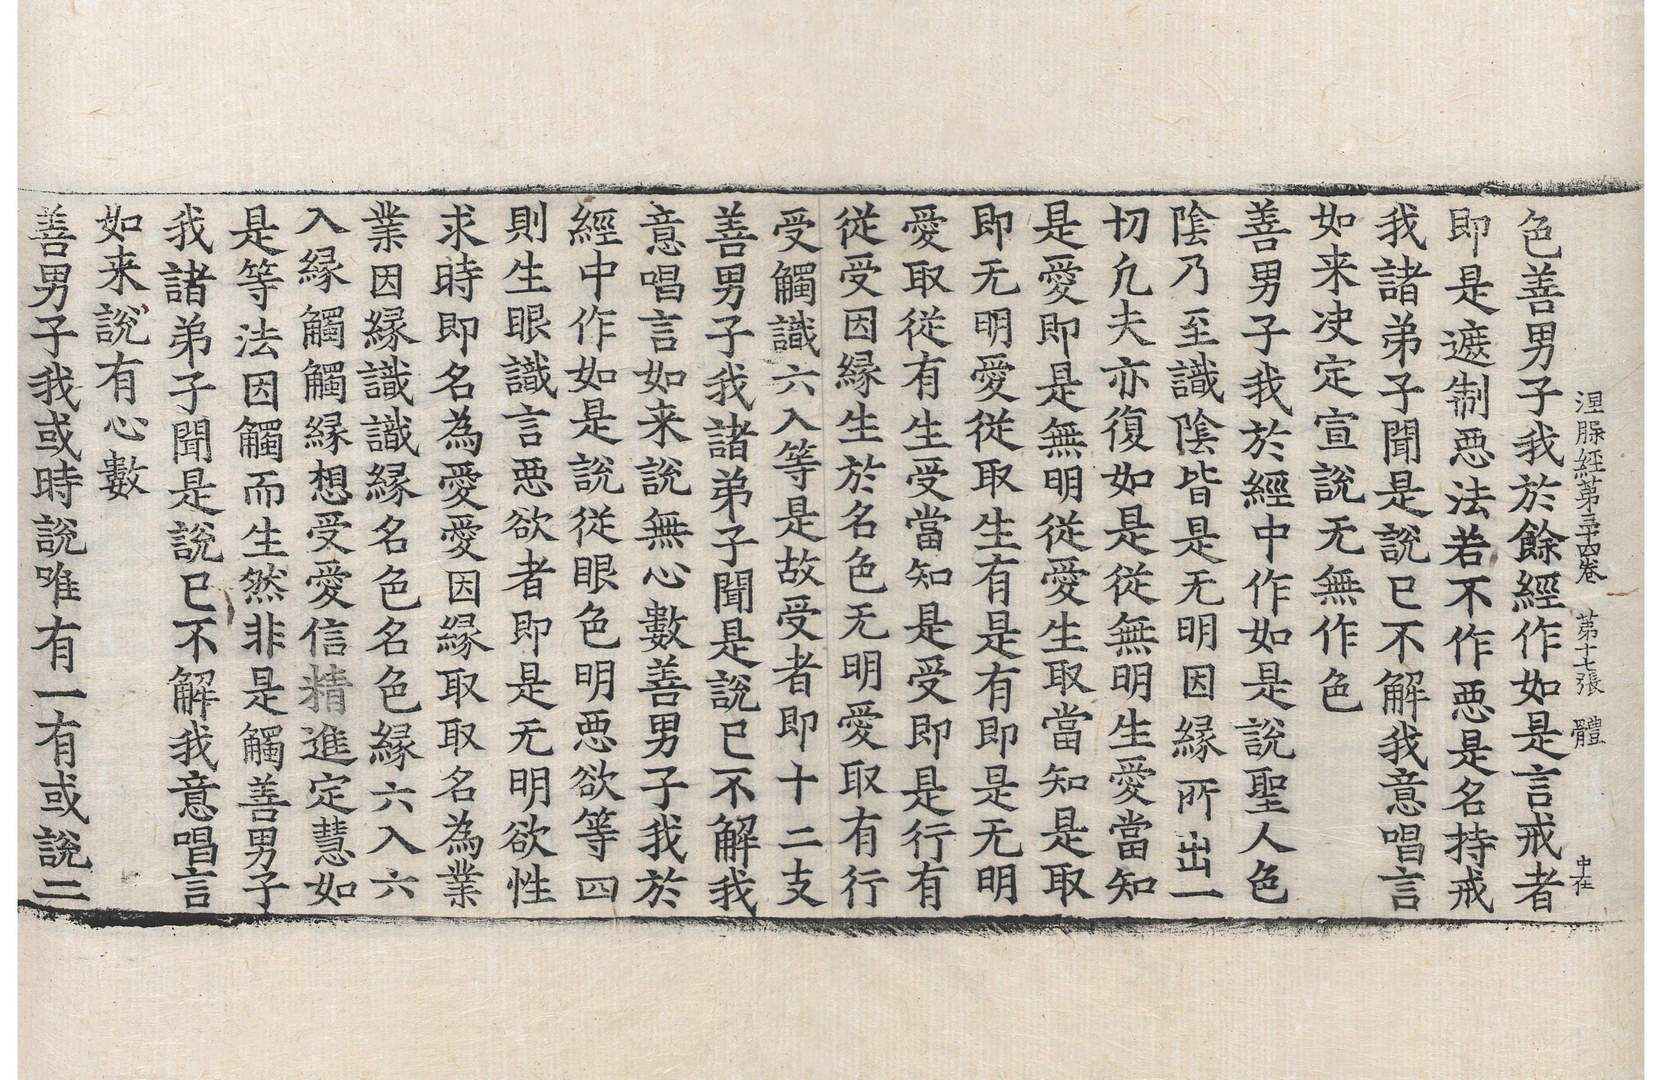 涅脤經第三十四卷 第十七張 體 中在
色善男子我於餘經作如是言戒者
即是遮制惡法若不作惡是名持戒
我諸弟子聞是說已不解我意唱言
如来决定宣說无無作色
善男子我於經中作如是說聖人色
陰乃至識陰皆是无明因縁所出一
切凢夫亦復如是從無明生愛當知
是愛即是無明從愛生取當知是取
即无明愛從取生有是有即是无明
愛取從有生受當知是受即是行有
從受因縁生於名色无明愛取有行
受觸識六入等是故受者即十二支
善男子我諸弟子聞是說已不解我
意唱言如来說無心數善男子我於
經中作如是說從眼色明惡欲等四
則生眼識言惡欲者即是无明欲性
求時即名為愛愛因縁取取名為業
業因縁識識縁名色名色縁六入六
入縁觸觸縁想受愛信精進定慧如
是等法因觸而生然非是觸善男子
我諸弟子聞是說已不解我意唱言
如来說有心數
善男子我或時說唯有一有或說二